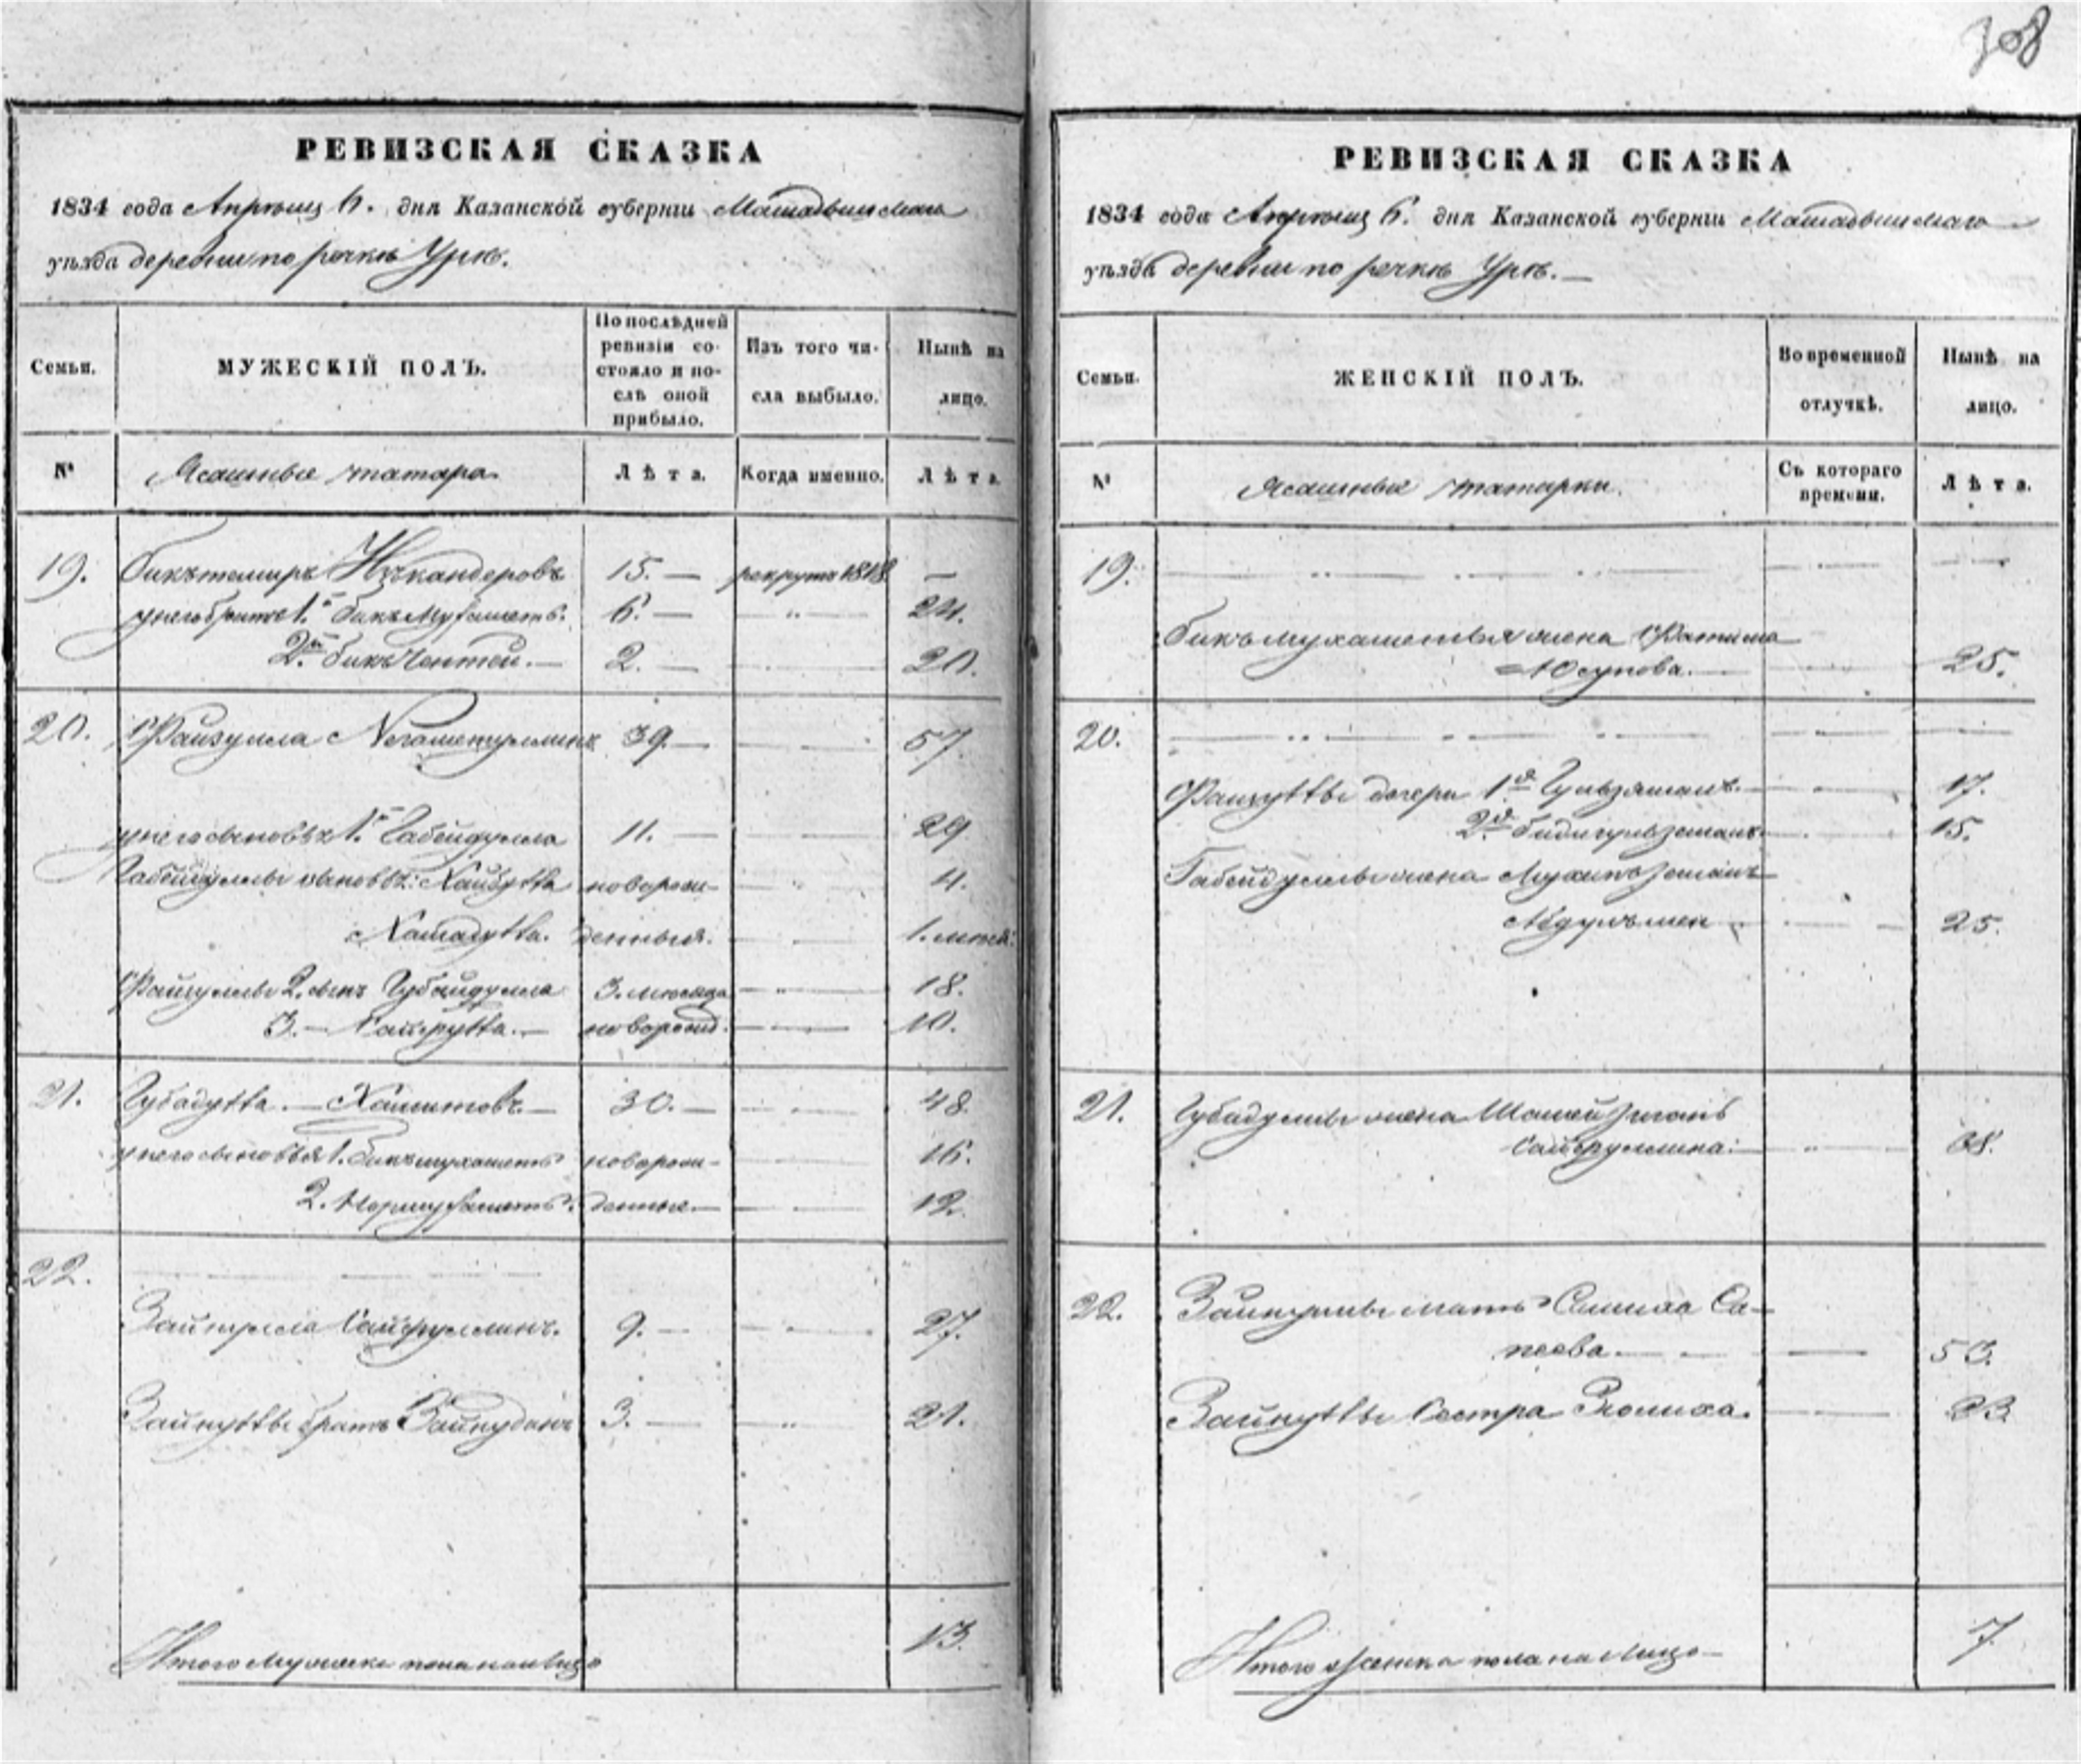 308
РЕВИЗСКАЯ СКАЗКА
1834 года Апрѣля 6. дня Казанской губерніи Мамадышскаго
уѣзда деревни по речкѣ Урѣ.
Семьи.
МУЖЕСКІЙ ПОЛЪ.
По послѣдней
ревизіи со-
стояло и по-
слѣ оной
прибыло.
Изъ того чи-
сла выбыло.
Нынѣ на
лицо.
№
Ясашные татара
Лѣта.
Когда именно.
Лѣта.
19. Бикътемиръ 15. — рекрутъ 1818 —
у него братья 1.й бикъмухаметь. 6. — " 24.
2.й 2. — 20.
20. Файзулла 39. — 57.
у него сыновья 1.й Габейдулла 11. — 29
Габейдуллы сыновья: Хайбулла новорож- " 4.
Хамадулла. денныя. 1.
Файзуллы 2. сынъ Губайдулла 3. месяца " 18.
3. — Хайрулла. — новорожд. 10.
21. Губадулла. — Хамитовъ. — 30. — 48.
у него сыновья 1. Бикмухаметь новорож- 16.
2. Нормухаметь. денные. — 12.
22.
Зайнулла Сайфуллинъ. 9. — 27.
Зайнуллы братъ 3. — " 21.
Итого мужеска пола на лицо 13.
РЕВИЗСКАЯ СКАЗКА
1834 года Апрѣля 6. дня Казанской губерніи Мамадышскаго
уѣзда деревни по речкѣ Урѣ. —
Семьи.
ЖЕНСКІЙ ПОЛЪ.
Во временной
отлучкѣ.
Нынѣ на
лицо.
№
Ясашные татарки.
Съ котораго
времени.
Лѣта.
19.
Бикъмухаметья жена Фатима
Юсупова. — 25.
20.
Файзуллы дочери 1.я Гульзяманъ. — 17.
2.я 15.
Габейдуллы жена
25.
21. Губадуллы жена
Сайфуллина: — " 38.
22. Зайнуллы мать Салиха Са-
пеева. — 53.
Зайнуллы Сестра Золиха. 23
Итого женска пола на Лицо — 7